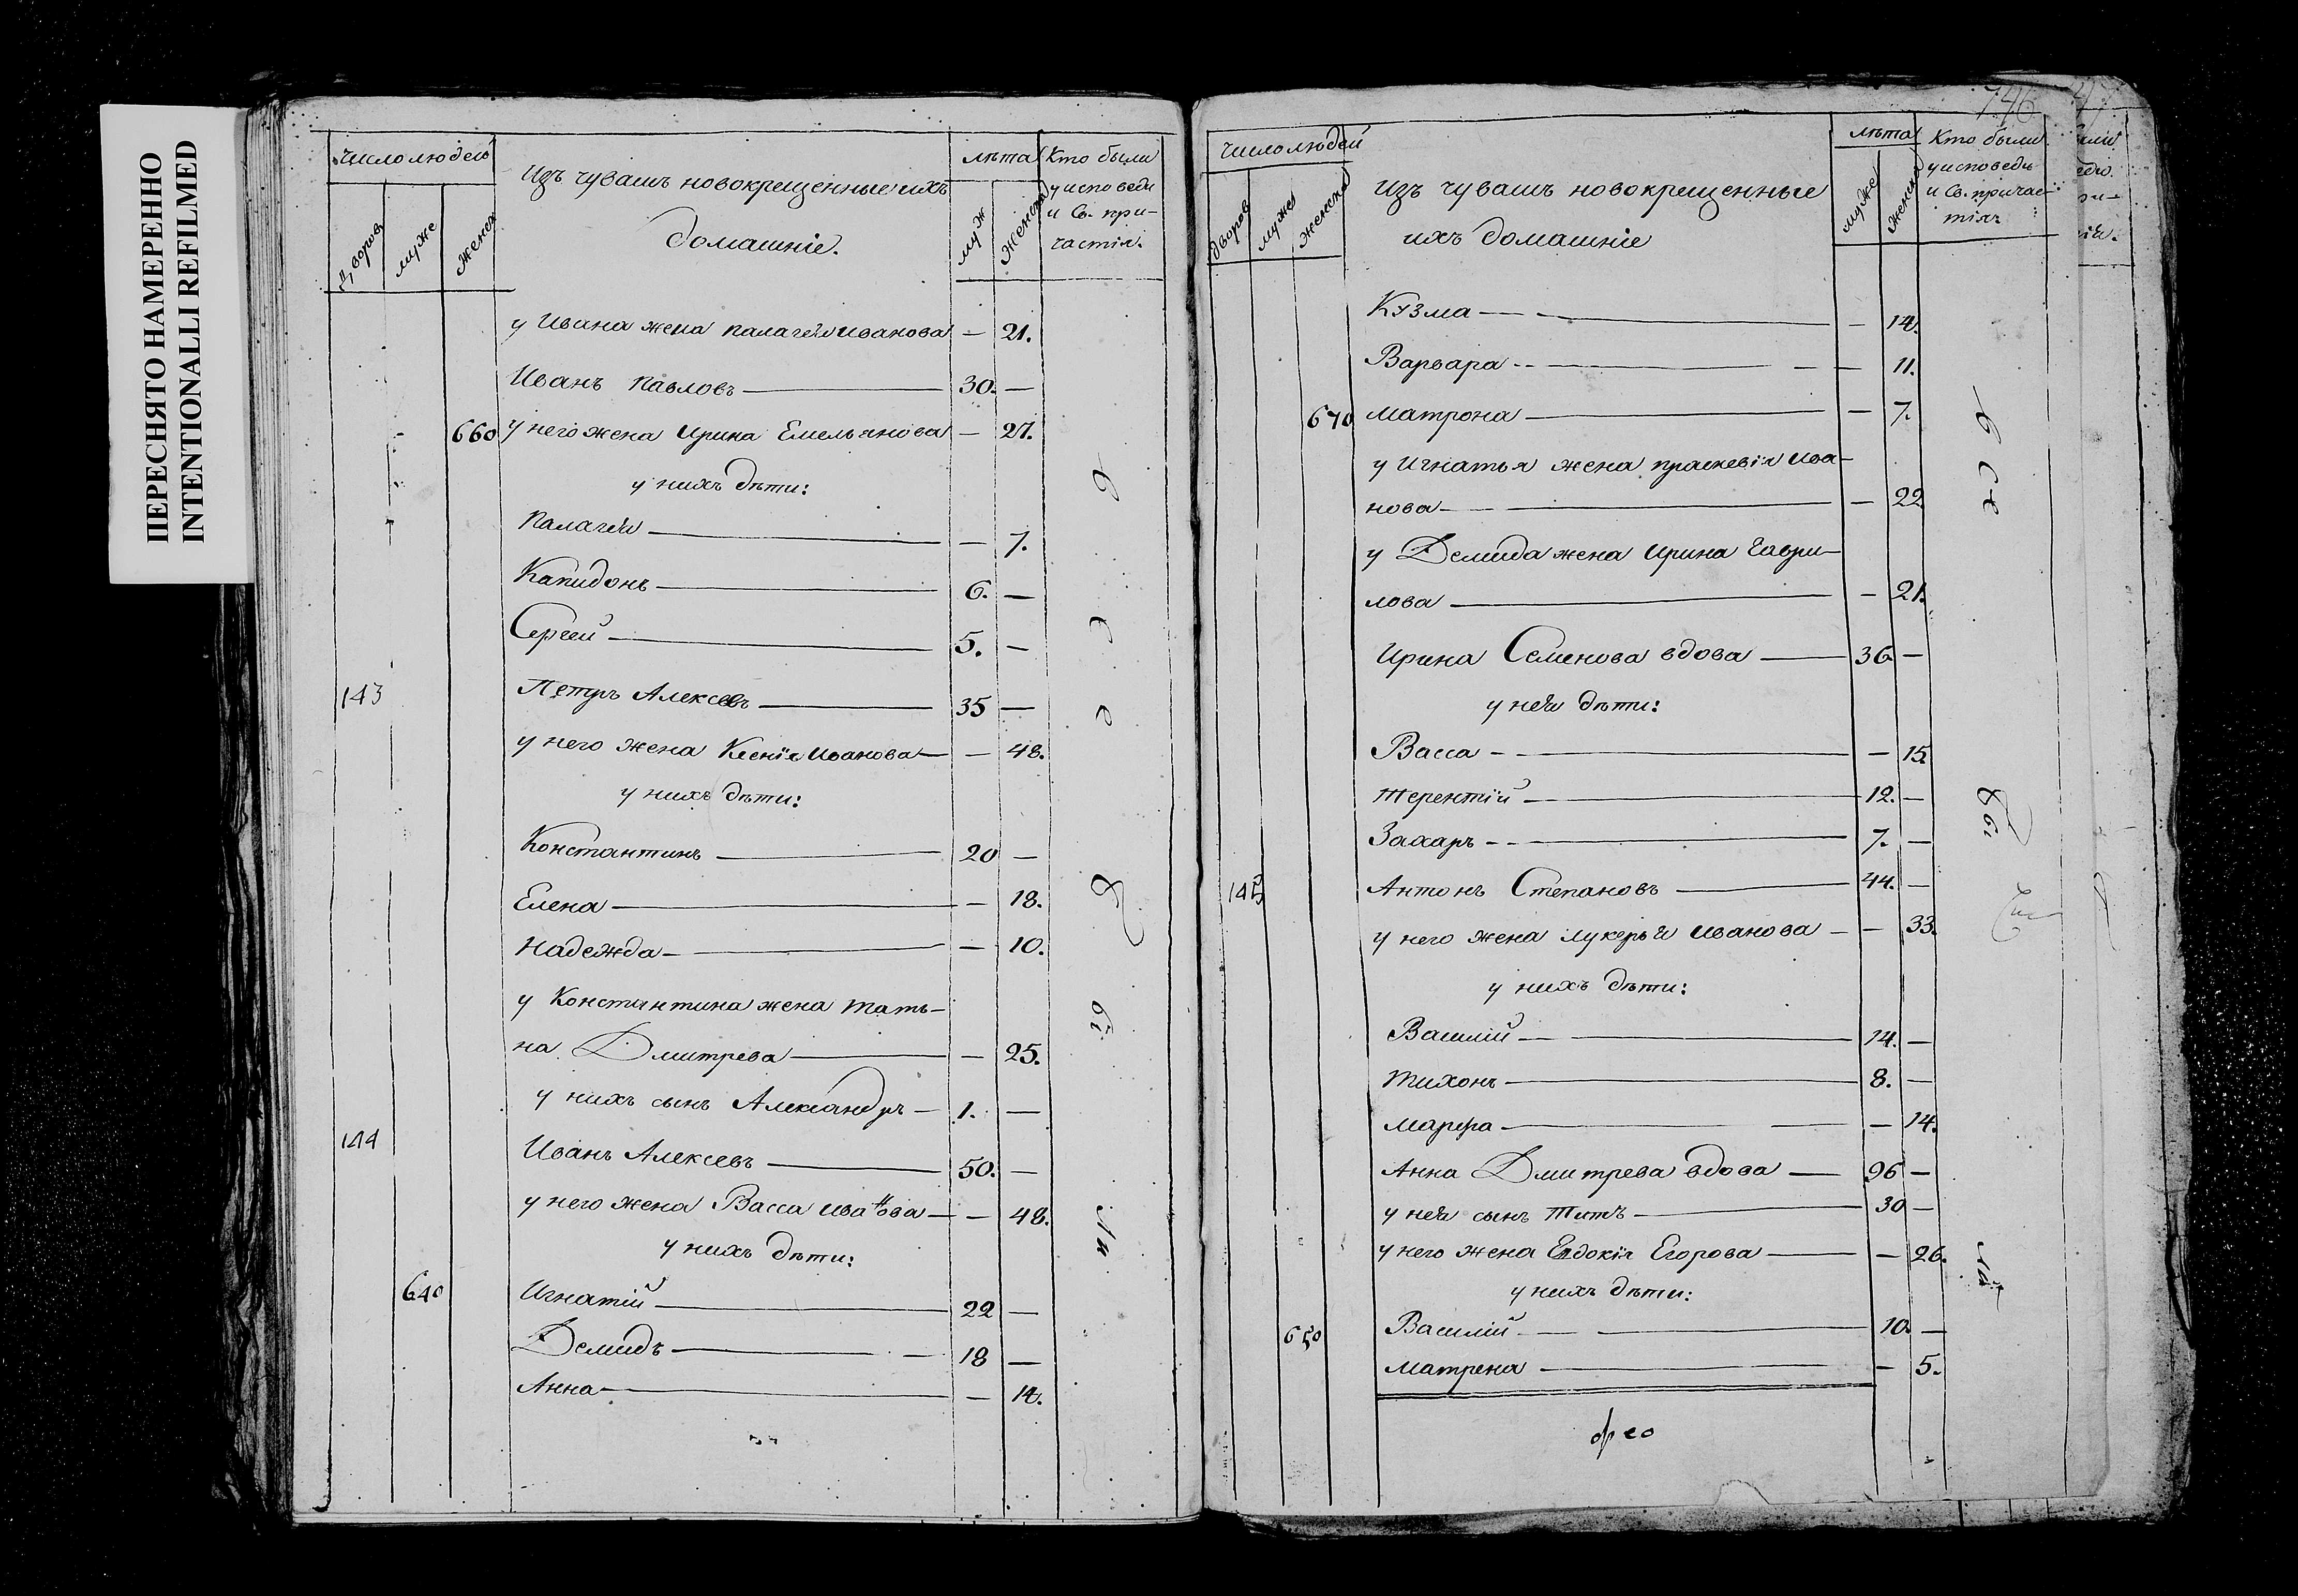 ПЕРЕСНЯТО НАМЕРЕННО
INTENTIONALLI REFILMED
число людей
Изъ чувашъ новокрещенные ихъ
домашніе.
лѣта
Кто были
у исповеди
и Св. при-
частія.
дворов
муже
женск
муж
женск
у Ивана жена палагея иванова — 21.
Иванъ павловъ 30. —
660 у него жена Ирина Емельянова — 27.
у нихъ дѣти:
палагея — 7.
Капидонъ 6. —
Сергей 5. —
143 Петръ Алексеевъ 35 —
у него жена Ксенія иванова — 48.
у нихъ дѣти:
Константинъ 20 —
Елена — 18.
надежда — 10.
у Константина жена тать-
на Дмитрева — 25.
у нихъ сынъ Александръ 1. —
144 Иванъ Алексеевъ 50. —
у него жена Васса иванова — 48.
у нихъ дѣти:
640 Игнатій 22 —
Демидъ 18 —
Анна — 14.
746
число людей
изъ чувашъ новокрещенные
ихъ домашніе
лѣта
Кто были
у исповедь
и Св. причас-
тіяхъ
дворов
муже
женска
муже
женска
Кузма — 14.
Варвара — 11.
670 матрона — 7.
у Игнатья жена праскевія ива-
нова — 22
у Демида жена ирина гаври-
лова — 21.
Ирина Семенова вдова 36 —
у нея дѣти:
Васса — 15.
терентій 12. —
Захаръ 7. —
145 Антонъ Степановъ 44. —
у него жена лукерья иванова — 33.
у нихъ дѣти:
Василій 14. —
тихонъ 8. —
марфа — 14.
Анна Дмитрева вдова 96 —
у нея сынъ титъ 30 —
у него жена Евдокія Егорова — 26.
у нихъ дѣти:
650 Василій 10. —
матрена — 5.